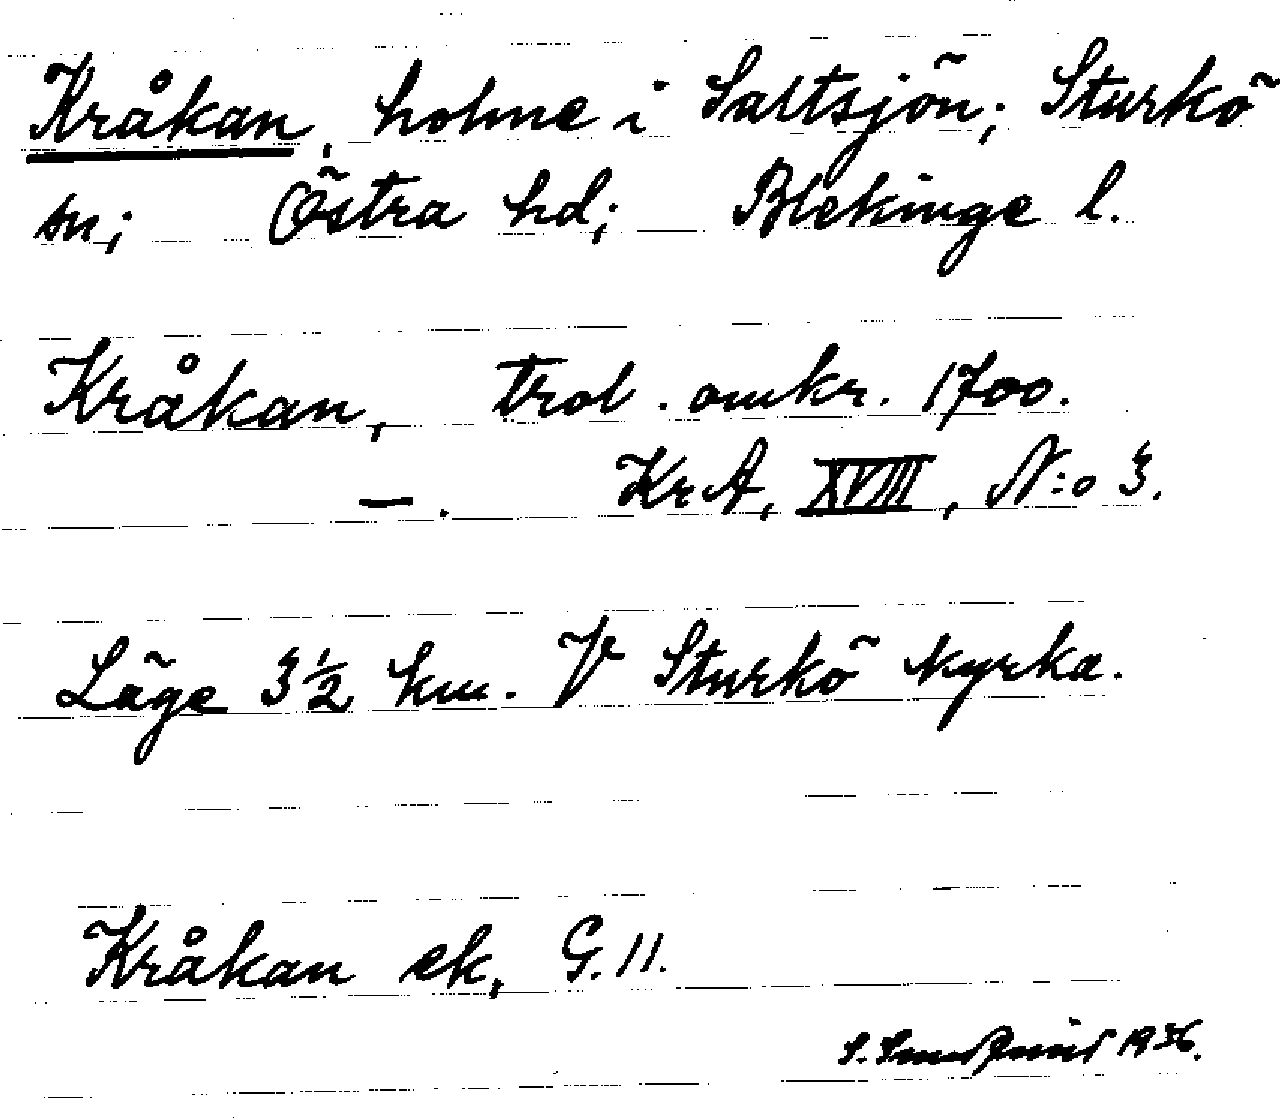 Kråkan, holme i Saltsjön; Sturkö
sn; Östra hd; Blekinge l.
Kråkan, trol. omkr. 1700.
—. KrA, XVIII, N:o 3.
Läge 3 1/2 km. V Sturkö kyrka.
Kråkan ek, G. 11.
1936.